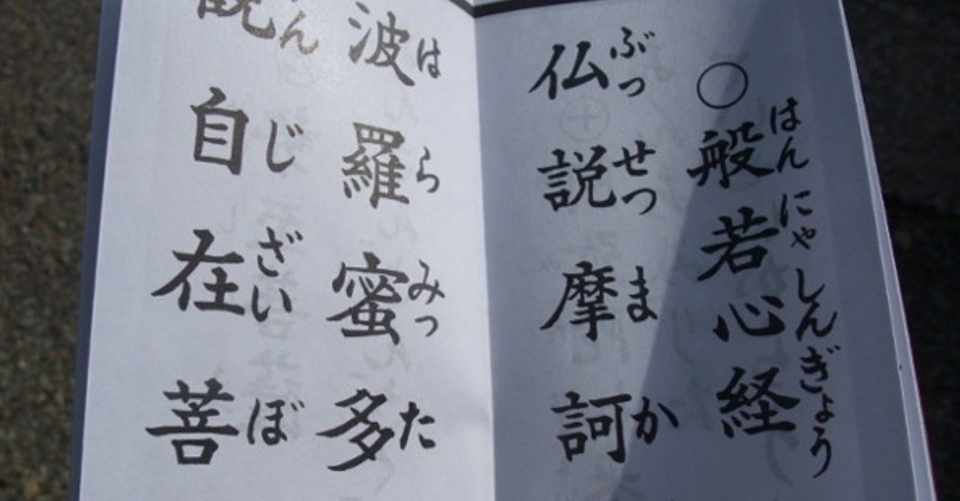 ○般若心経
はんにゃしんぎょう
仏説摩訶
ぶっせつまか
波羅蜜多
はらみった
観自在菩
んじざいぼ